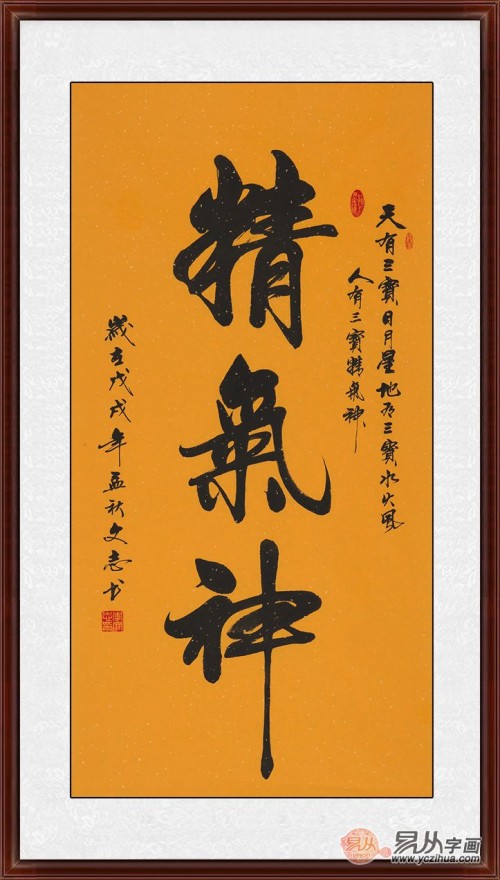 天有三寶日月星地有三寶水火風
人有三寶精氣神
精氣神
歲在戊戌年孟秋文志书
易从字画
www.yczihua.com